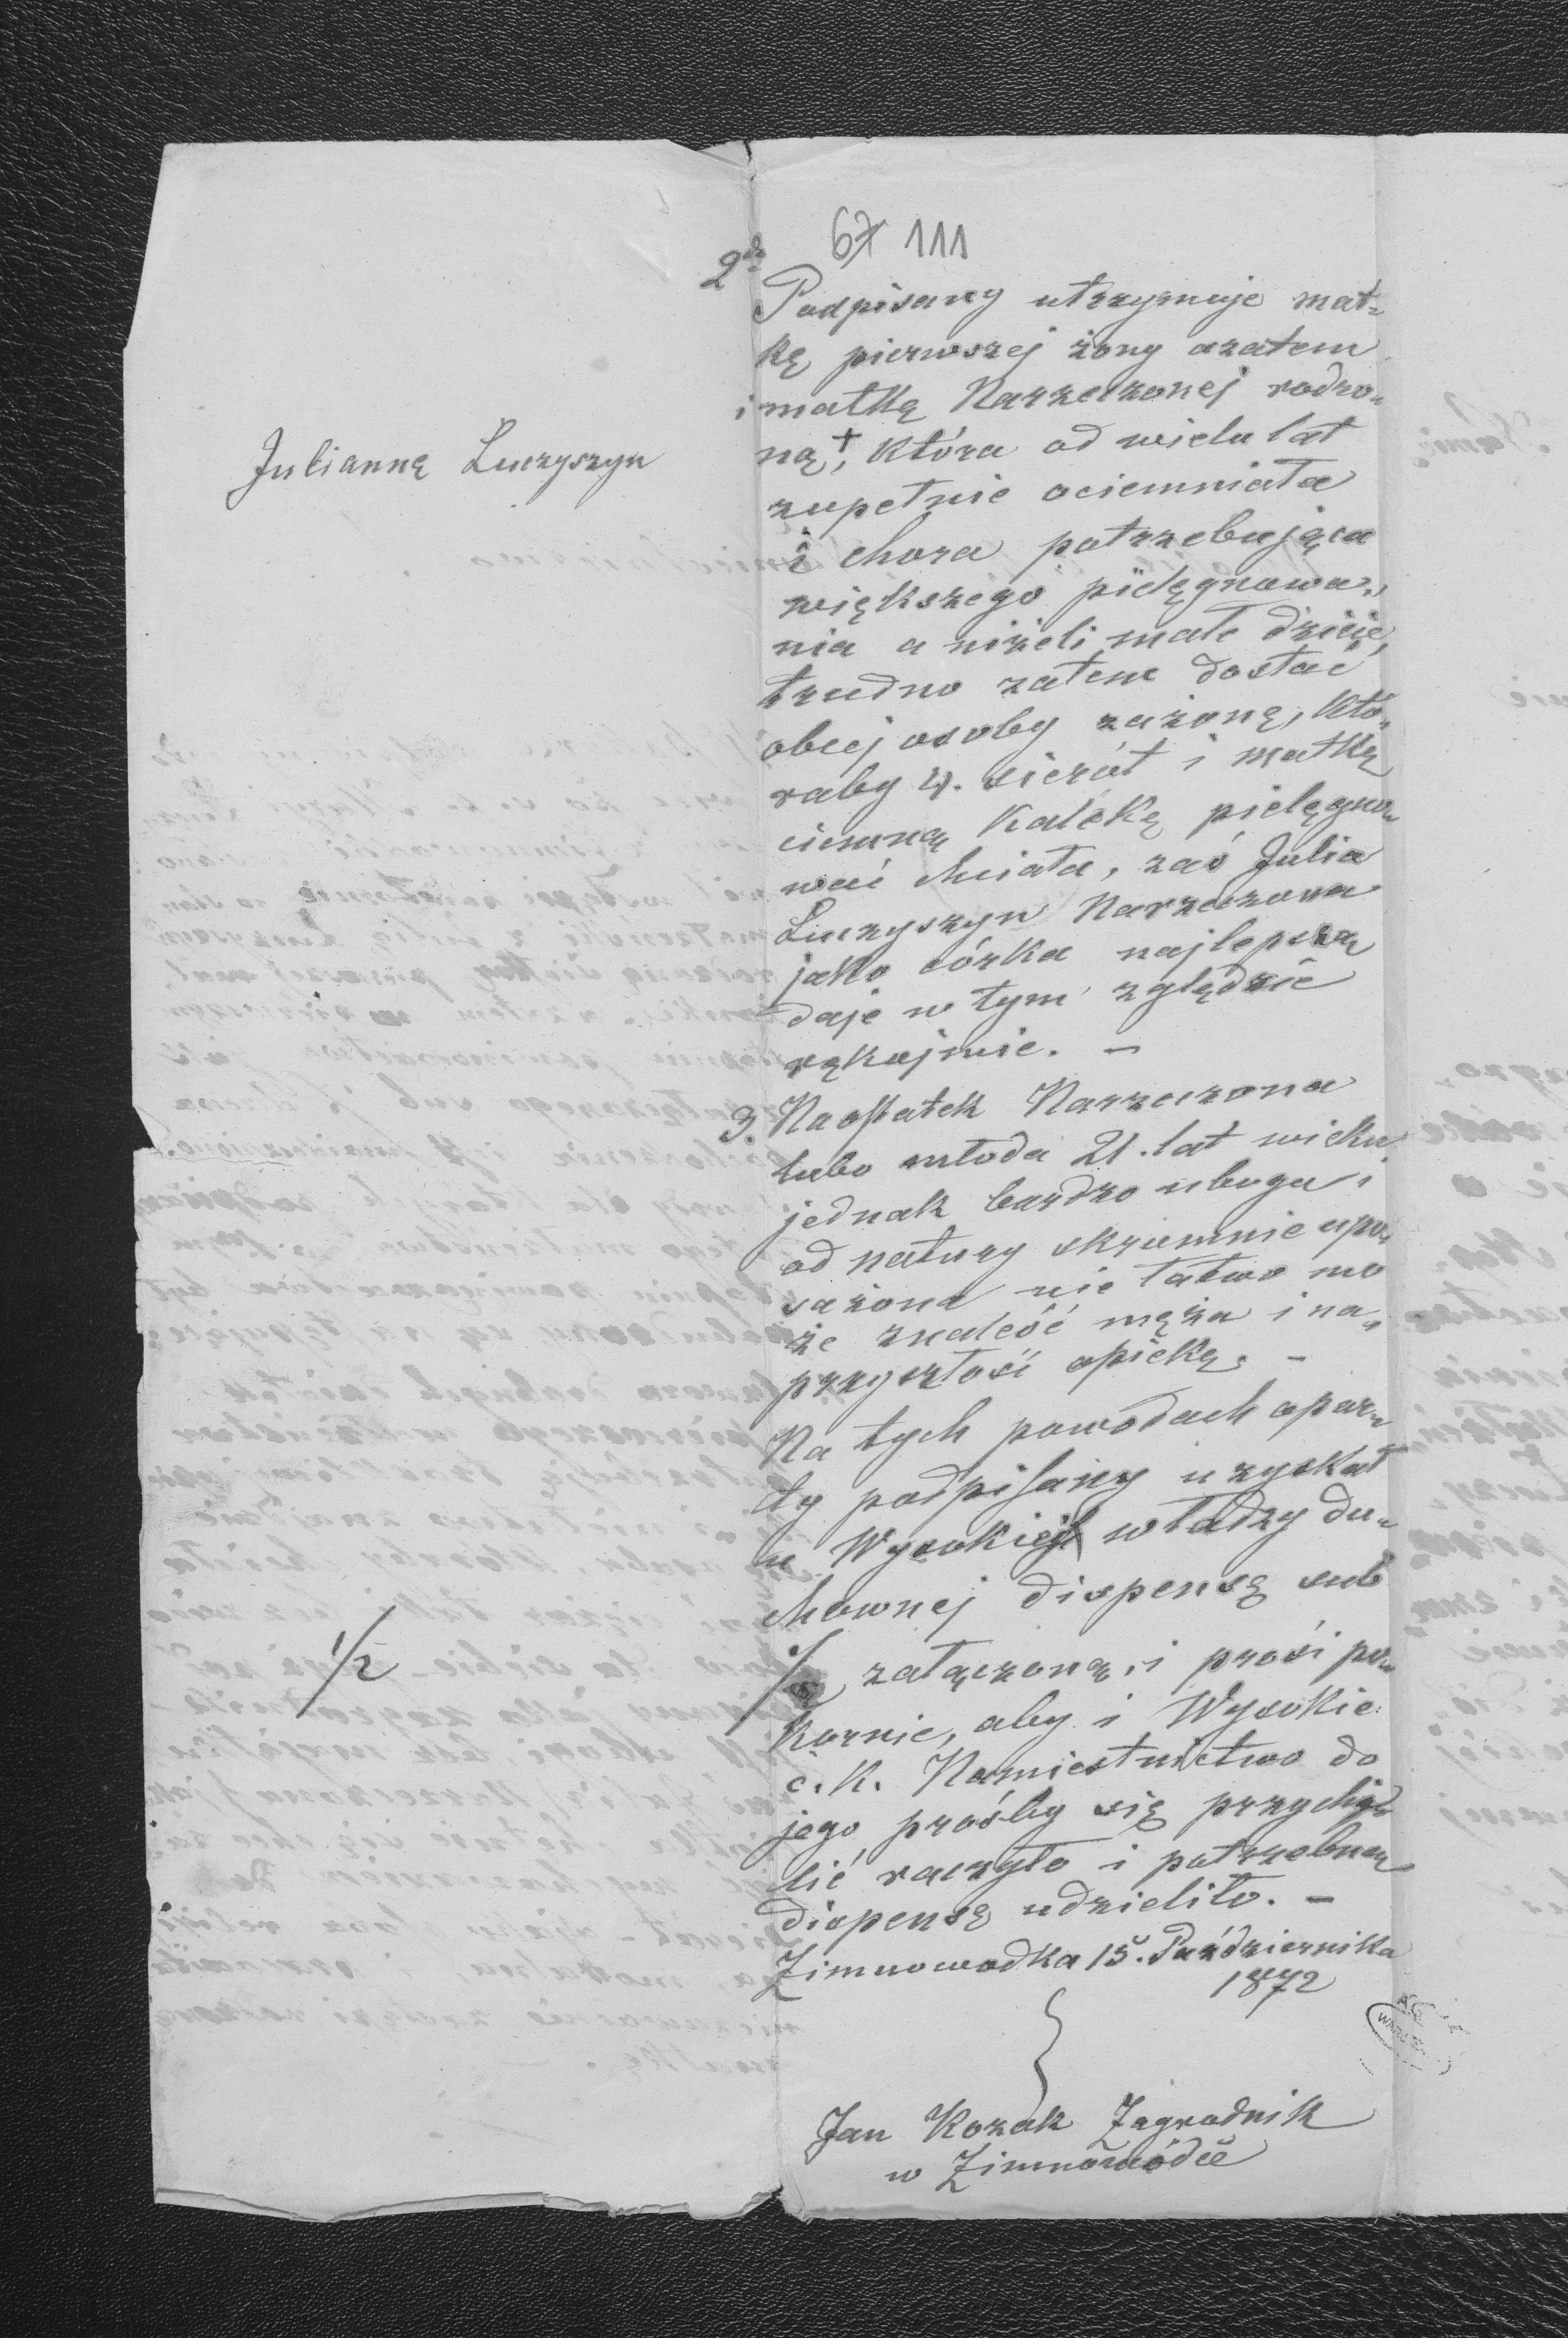 67 111
2do
Podpisany utrzymuje mat=
kę pierwszej żony azatem
i matkę Narzeczonej rodzo=
ną +, która od wielu lat
Julianną Luczyszyn
zupełnie ociemniała
i chora potrzebująca
większego pielęgnowa=
nia a niżeli małe dziecię,
trudno zatem dostać
obcej osoby zażonę, któ=
raby 4. sierót i matkę
ciemną kalekę pielęgno=
wać chciała, zaś Julia
Luczyszyn Narzeczona
jako córka najlepszą
daje w tym zględzie
rękojmie. –
3. Naostatek Narzeczona
lubo młoda 21. lat wieku
jednak bardzo uboga i
od natury skromnie upo=
sażona nie łatwo mo
że znaleść męża i na=
przyszłość opiekę. –
Na tych powodach opar=
ty podpisany uzyskał
u Wysokiej władzy du=
chownej dispensę sub
1/2
załączoną, i prosi po=
kornie, aby i Wysokie
c. k. Namiestnictwo do
jego prośby się przychy=
lić raczyło i potrzebną
dispensę udzieliło. –
Zimnowodka 15. Października
1872
Jan Kozak Zagrodnik
w Zimnowódce